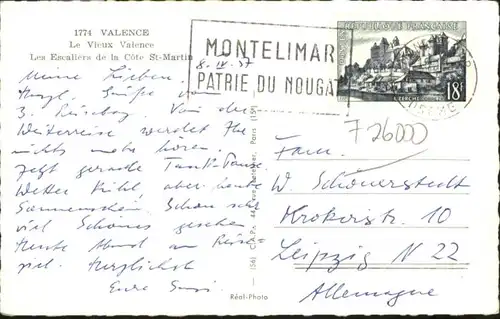 1774 VALENCE
Le Vieux Valence
Les Escaliers de la Côte St-Martin
MONTELIMAR
PATRIE DU NOUGAT
REPUBLIQUE FRANÇAISE
POSTES
UZERCHE
18F
8. IV. 57
Meine Lieben.
Herzl. Grüße vom
3. Reisetag. Von der
Weiterreise werdet Ihr
nichts mehr hören.
Jetzt gerade Tank-Pause
Wetter kühl, aber heute
Sonnenschein. Schon sehr
viel Schönes gesehen
Heute Abend am
Herzlichst
Eure Susi
F 26000
Fam.
W. Schönerstedt
Krokerstr. 10
Leipzig N 22
Allemagne
(56) C.A.P. 44, rue Letellier, Paris (15e)
Réal-Photo